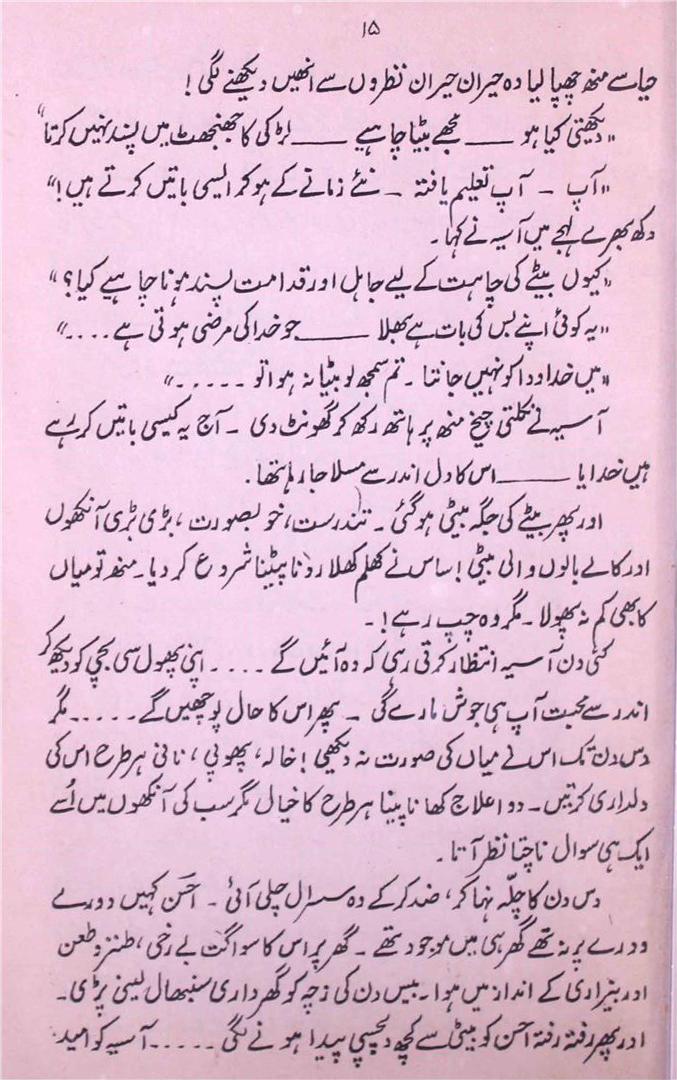 ۱۵
حیا سے منھ چھپا لیا وہ حیران حیران نظروں سے انھیں دیکھنے لگی!
"دیکھتی کیا ہو ــــــ مجھے بیٹا چاہیے ــــــ لڑکی کا جھنجھٹ میں پسند نہیں کرتا"
"آپ ـ آپ تعلیم یافتہ ـ نئے زمانے کے ہو کر ایسی باتیں کرتے ہیں!"
دکھ بھرے لہجے میں آسیہ نے کہا۔
"کیوں بیٹے کی چاہت کے لیے جاہل اور قدامت پسند ہونا چاہیے کیا؟"
"یہ کوئی اپنے بس کی بات ہے بھلا ــــــ جو خدا کی مرضی ہوتی ہے ...."
"میں خدا ودا کو نہیں جانتا ۔ تم سمجھ لو بیٹا نہ ہوا تو ....."
آسیہ نے نکلتی چیخ منھ پر ہاتھ رکھ کر گھونٹ دی ۔ آج یہ کیسی باتیں کر رہے
ہیں خدایا ــــــ اس کا دل اندر سے مسلا جا رہا تھا۔
اور پھر بیٹے کی جگہ بیٹی ہو گئی ۔ تندرست، خوبصورت، بڑی بڑی آنکھوں
اور کالے بالوں والی بیٹی! ساس نے کھلم کھلا رونا پیٹنا شروع کر دیا۔ منھ تو میاں
کا بھی کم نہ پھولا ۔ مگر وہ چپ رہے! ۔
کئی دن آسیہ انتظار کرتی رہی کہ وہ آئیں گے .... اپنی پھول سی بچی کو دیکھ کر
اندر سے محبت آپ ہی جوش مارے گی ۔ پھر اس کا حال پوچھیں گے ..... مگر
دس دن تک اس نے میاں کی صورت نہ دیکھی! خالہ، پھوپی، نانی ہر طرح اس کی
دلداری کرتیں۔ دوا علاج کھانا پینا ہر طرح کا خیال مگر سب کی آنکھوں میں اُسے
ایک ہی سوال ناچتا نظر آتا ۔
دس دن کا چلّہ نہا کر، ضد کر کے وہ سسرال چلی آئی ۔ احسن کہیں دورے
وورے پر نہ تھے گھر ہی میں موجود تھے ۔ گھر پر اس کا سواگت بے رخی، طنز و طعن
اور بیزاری کے انداز میں ہوا۔ بیس دن کی زچہ کو گھر داری سنبھال لینی پڑی۔
اور پھر رفتہ رفتہ احسن کو بیٹی سے کچھ دلچسپی پیدا ہونے لگی ..... آسیہ کو امید